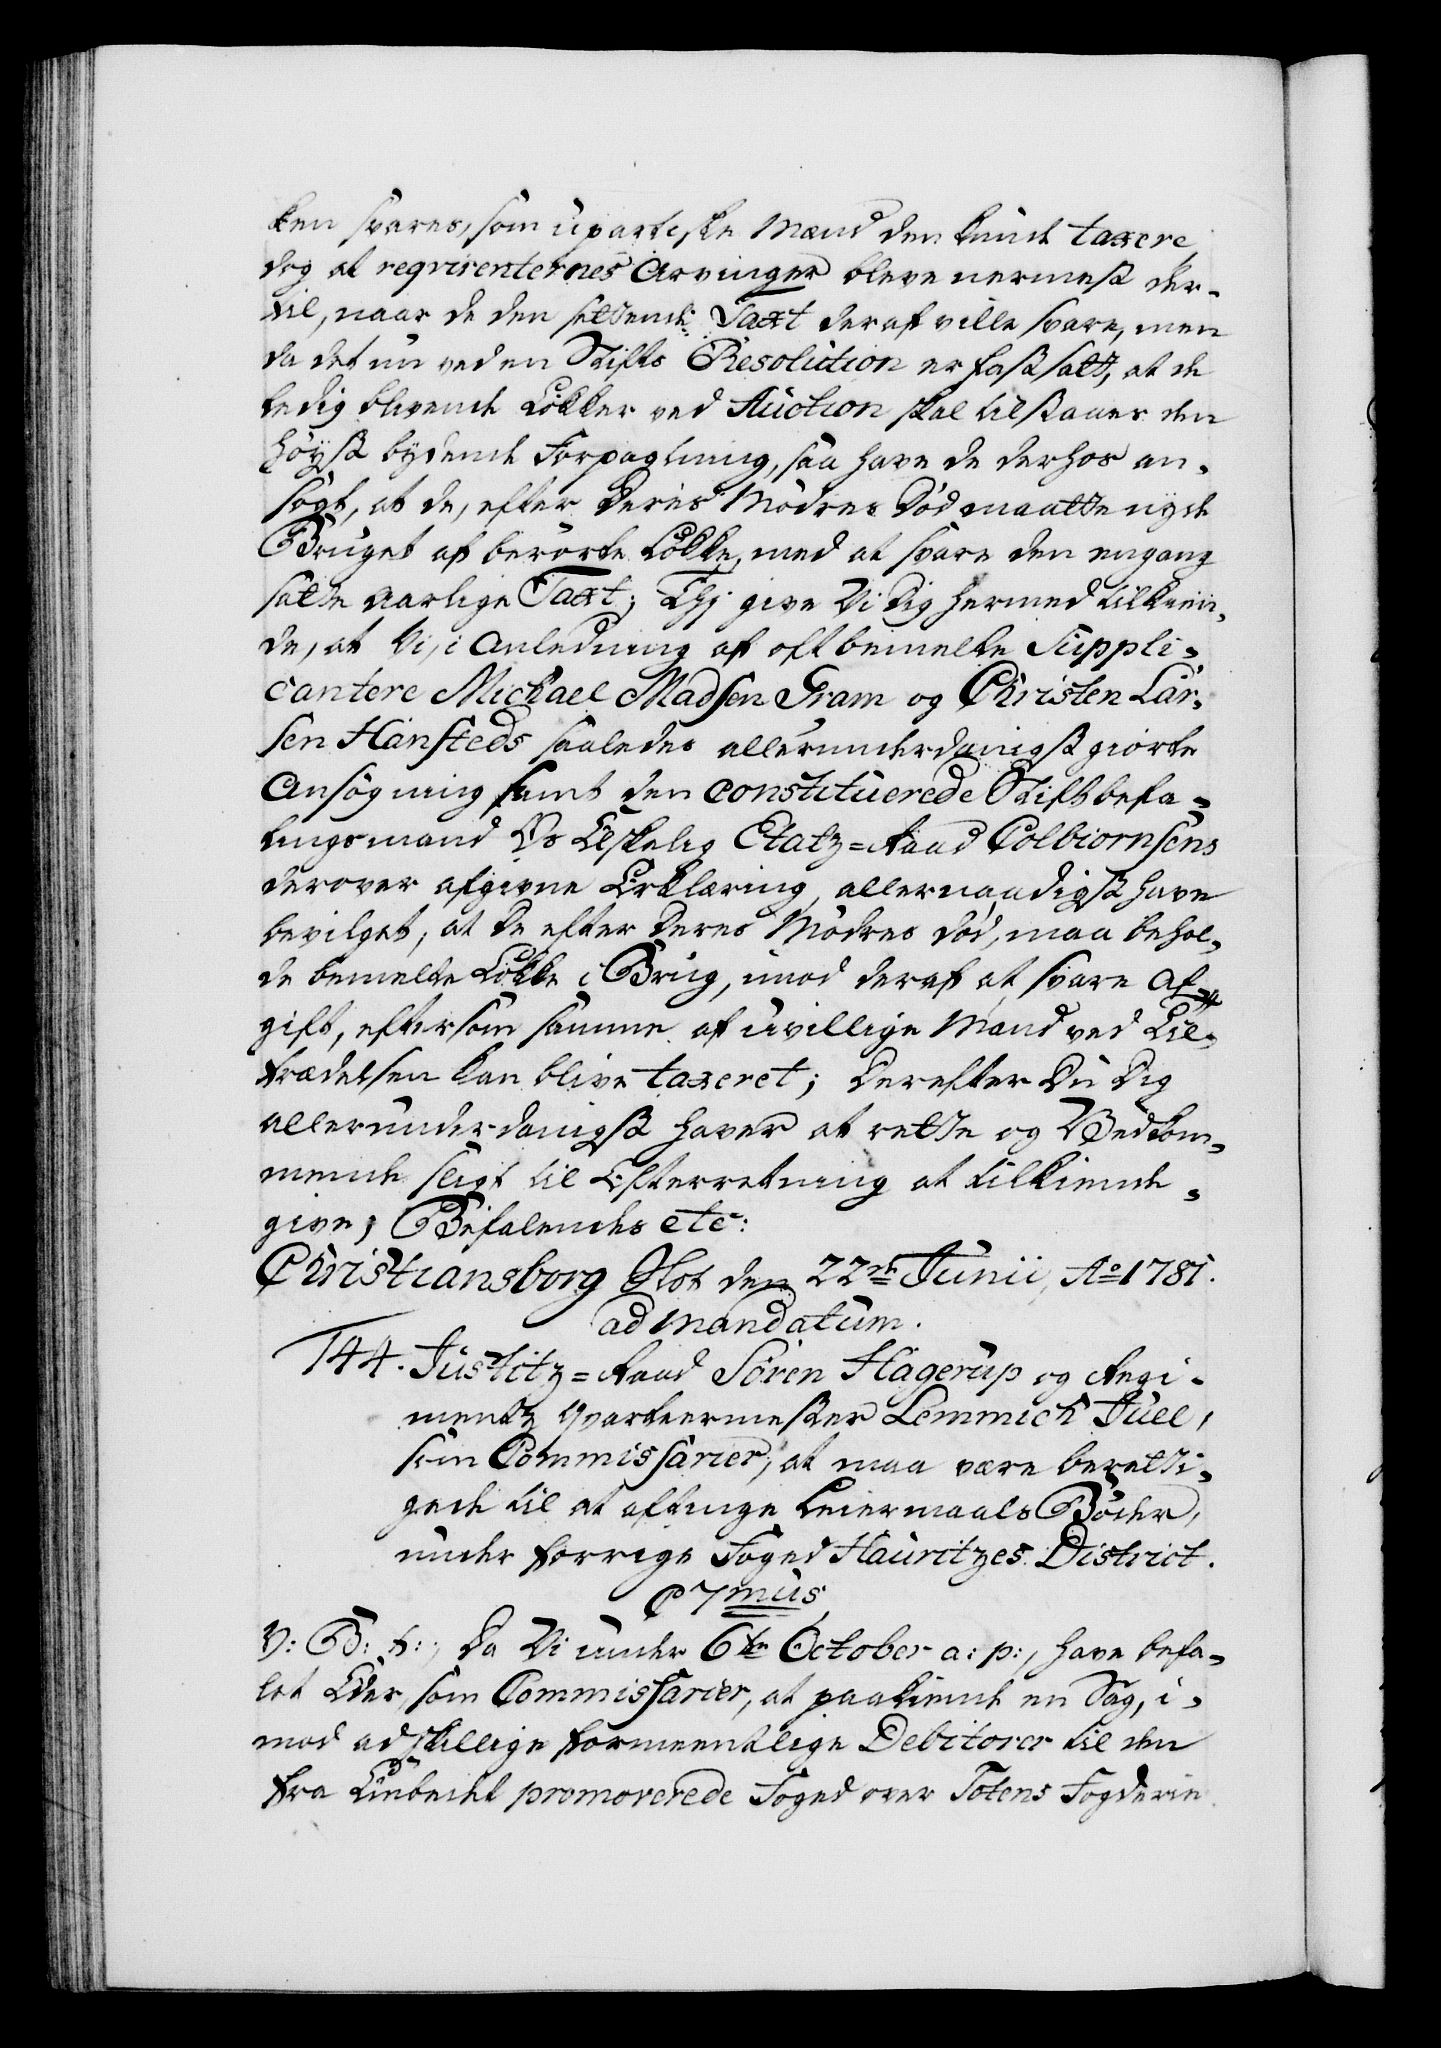 ken svares, som upartiske Mænd den kunde taxere
dog at reqvirenternes Arvinger bleve nermest der-
til, naar de den sættende Taxt deraf ville svare, men
da det nu ved en Stifts Resolution er fastsatt, at de
ledig blivende Løkker ved Auction skal tilstaaes den
høyst bydende Forpagtning, saa have de derhos an-
søgt, at de, efter deres Mødres Død maatte nyde
Bruget af berørte Løkke, med at svare den engang
satte aarlige Taxt; Thj give Vi Dig hermed tilkien-
de, at Vi, i Anledning af oftbemelte Suppli-
cantere Michael Madsen Gram og Christen Lar-
sen Hansteds saaledes allerunderdanigst giorte
Ansøgning samt den constituerede Stiftbefa-
lingsmand Os Elskelig Etatz-Raad Colbiornsens
derover afgivne Erklæring, allernaadigst have
bevilget, at de efter deres Mødres død, maa behol-
de bemelte Løkke i Brug, imod deraf at svare Af-
gift, eftersom samme af uvillige Mænd ved Til-
trædelsen kan blive taxeret; Derefter Du Dig
allerunderdanigst haver at rette og Vedkom-
mende sligt til Efterretning at tilkiende-
give; Befalendes etc:
Christiansborg Slot den 22de Junii, Ao 1781.
ad mandatum.
144. Justitz-Raad Søren Hagerup og Regi-
mentz Qvarteermester Lemmich Juel,
som Commissarier, at maa være beretti-
gede til at aftinge Leiermaals Bøder,
under forrige Foged Hauritzes District.
C 7mus
V: G: T:, Da Vi under 6te October a: p:, have befa-
let Eder, som Commissarier, at paakiende en Sag, i-
mod adskillige formeentlige Debitorer til den
fra Embedet promoverede Foged over Totens Fogderie